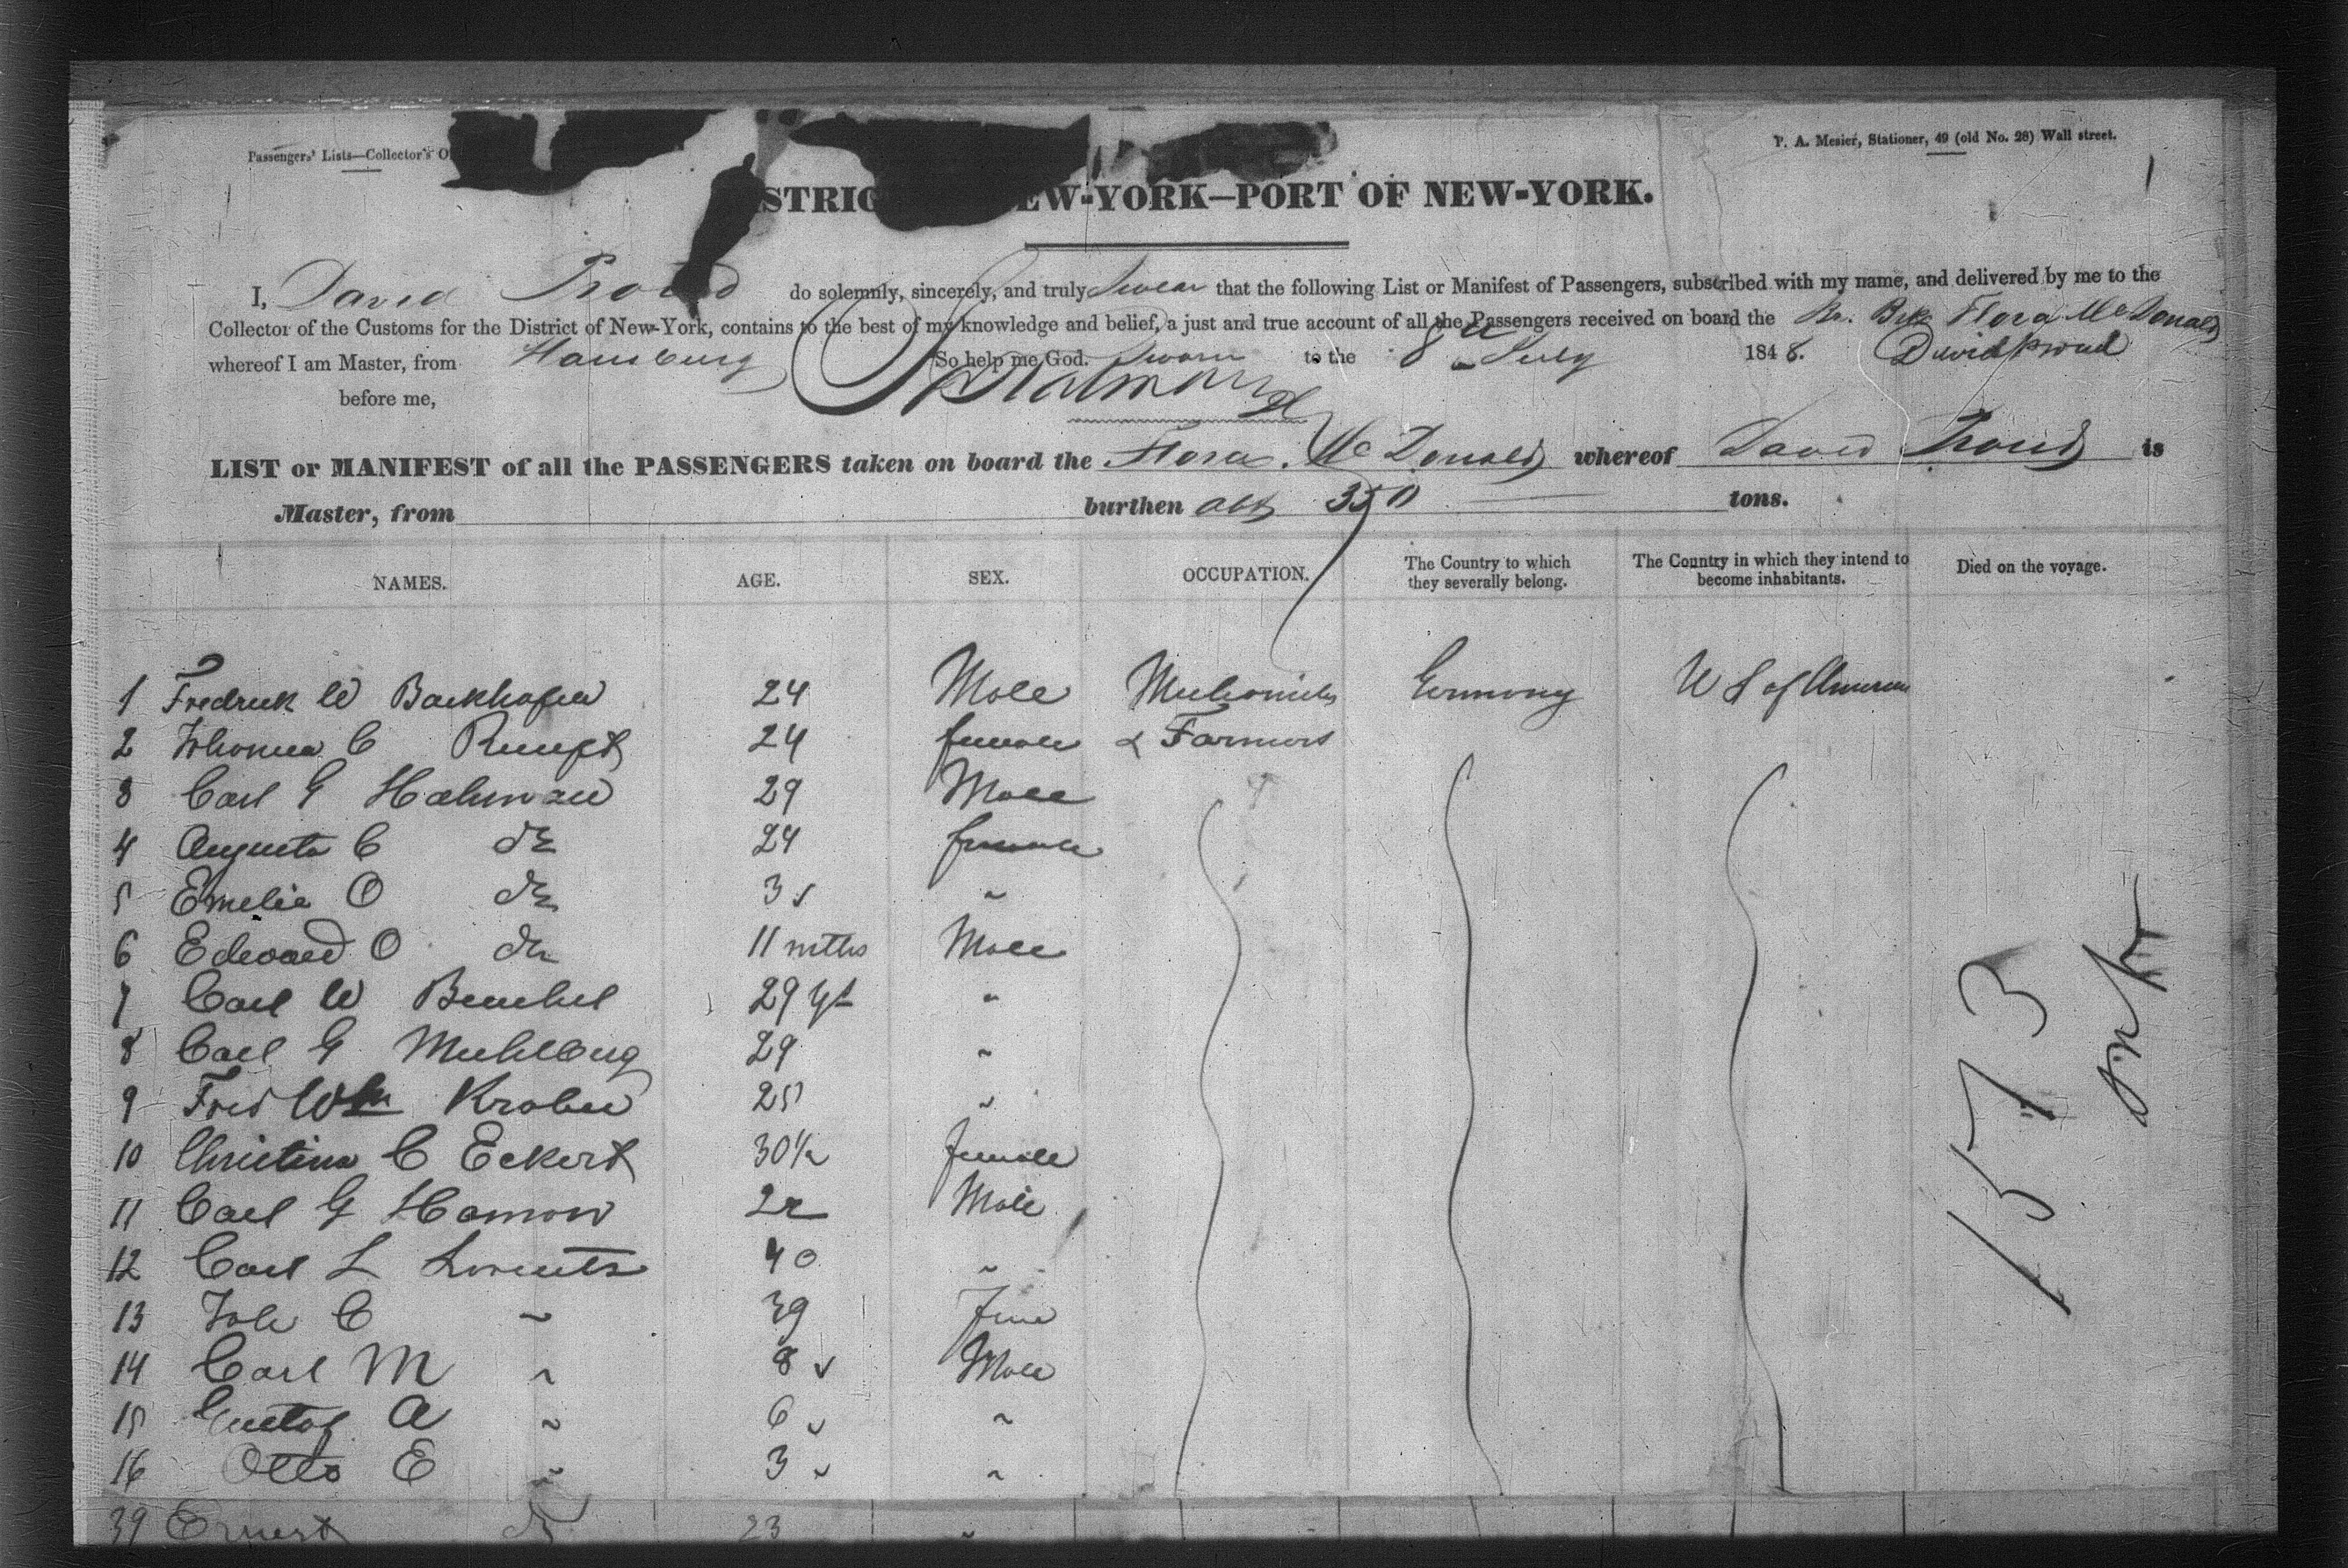 Passengers' Lists—Collector's O
P. A. Mesier, Stationer, 49 (old No. 28) Wall street.
STRIC EW-YORK—PORT OF NEW-YORK.
I, David Proud do solemnly, sincerely, and truly swear that the following List or Manifest of Passengers, subscribed with my name, and delivered by me to the
Collector of the Customs for the District of New-York, contains to the best of my knowledge and belief, a just and true account of all the Passengers received on board the Br. Bk. Flora McDonald
whereof I am Master, from Hamburg So help me God. Sworn to the 8 July 1848. David Proud
before me,
LIST or MANIFEST of all the PASSENGERS taken on board the Flora McDonald whereof David Proud is
Master, from burthen abt 350 tons.
NAMES. AGE. SEX. OCCUPATION. The Country to which they severally belong. The Country in which they intend to become inhabitants. Died on the voyage.
1 Fredrick W Backhofen 24 Male Mechanicks Germany U S of America
2 C Rumpt 24 female & Farmers
3 Carl G Hahman 29 Male
4 Augusta C do 24 female
5 Emelie O do 3 "
6 Edward O do 11 mths Male
7 Carl W 29 "
8 Carl G Muhlberg 29 "
9 Fred Wm 25 "
10 Christina C Eckert 30½ female
11 Carl G Hamon 22 Male
12 Carl L Lorentz 40 "
13 Joh C " 39 Fem
14 Carl M " 8 Male
15 Gustof A " 6 "
16 Otto E " 3 "
39 Ernest do 23 "
1573